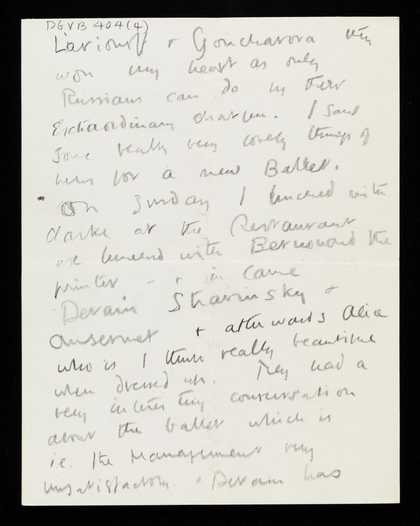 DGVB 404(4)
Larionoff + Goncharova they
won my heart as only
Russians can do by their
Extraordinary charm. I saw
some really very lovely things of
hers for a new Ballet.
On Sunday I lunched with
at the Restaurant
we lunched with the
printer - + in came
Derain Stravinsky +
Ansermet + afterwards Alice
who is I think really beautiful
when dressed up. They had a
very interesting conversation
about the ballet which is
i.e. the Management very
unsatisfactory. Derain has